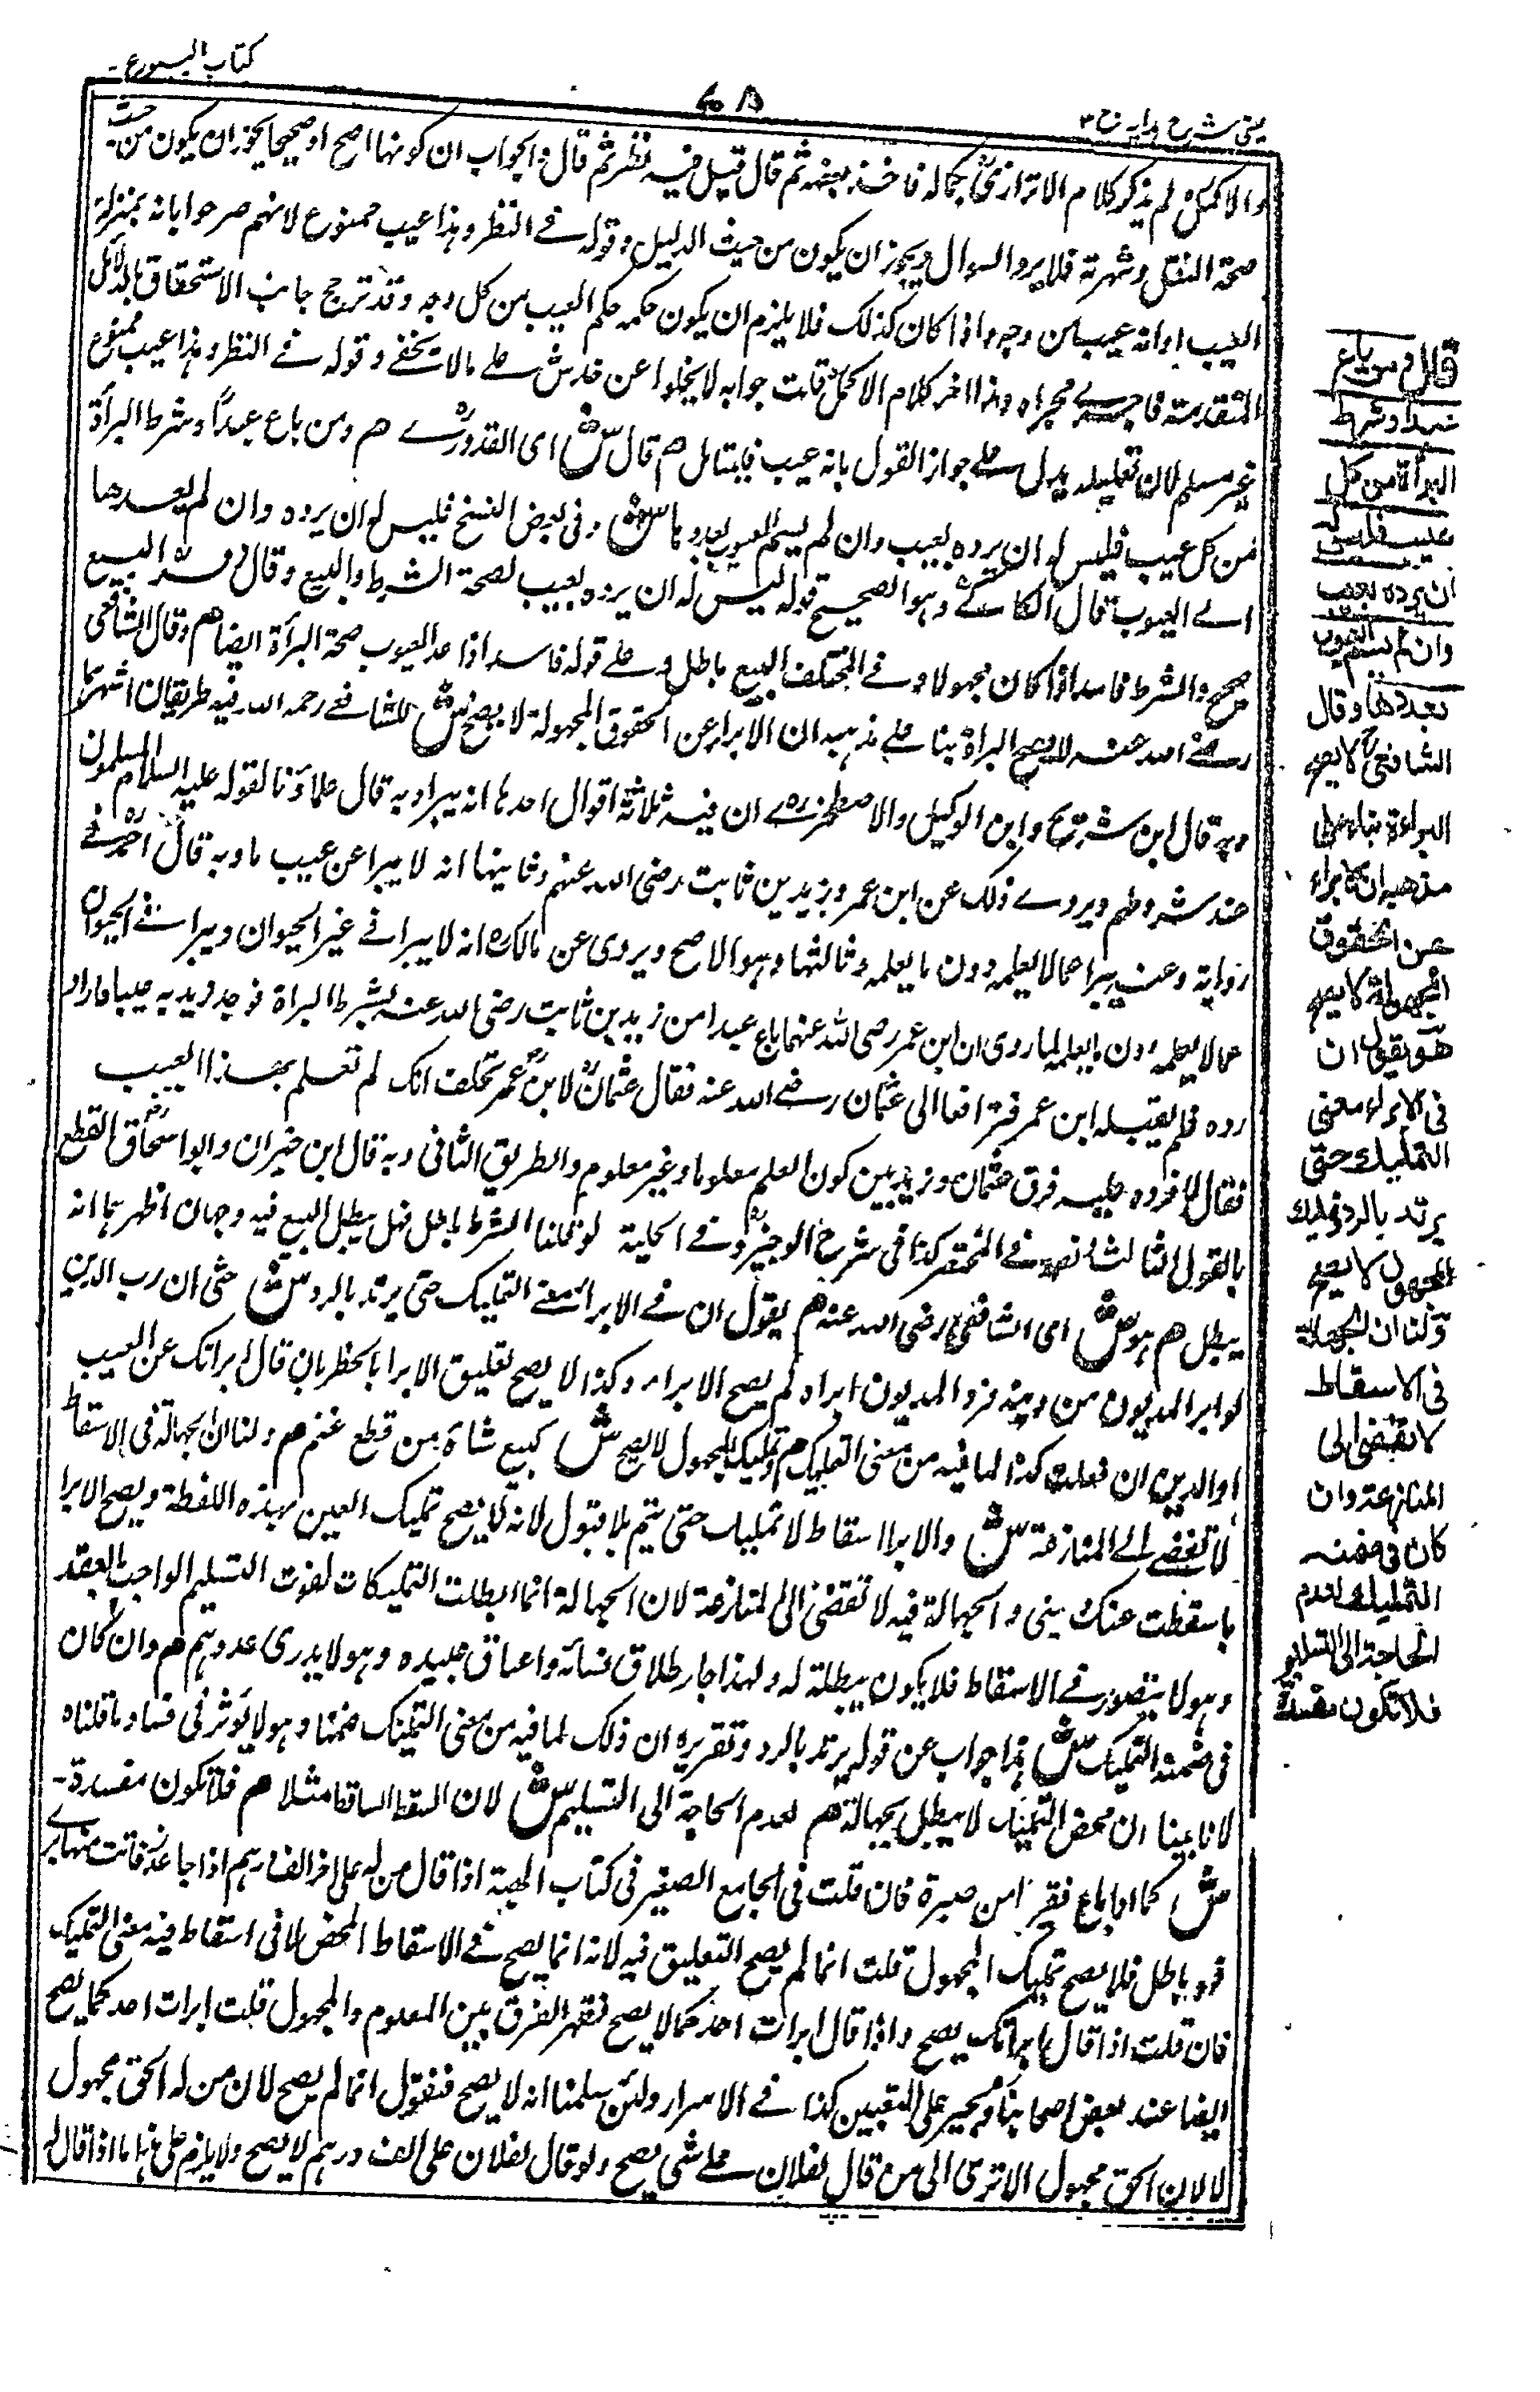 كتاب البيوع
عينى شرح هدايه ج ٣
والاكمل لم يذكر كلام الاترازى بكماله فاخذ بعضه ثم قال قيل فيه نظر ثم قال والجواب ان كونها اصح او صحيحا يجوز ان يكون من حيث
صحة النقل وشهرته فلا يرد السوال ويجوز ان يكون من حيث الدليل وقوله فى النظر وهذا عيب ممنوع لانهم صرحوا بانه بمنزلة
العيب او انه عيب من وجه واذا كان كذلك فلا يلزم ان يكون حكمه حكم العيب من كل وجه وقد ترجح جانب الاستحقاق بالدلائل
المتقدمة فاجرى مجراه وهذا اخر كلام الاكمل قلت جوابه لا يخلوا عن خدش على مالا يخفى وقوله فى النظر وهذا عيب ممنوع
غير مسلم لان تعليله يدل على جواز القول بانه عيب فليتامل هم قال ش اى القدورى هم ومن باع عبدا وشرط البرأة
من كل عيب فليس له ان يرده بعيب وان لم يسم العيوب بعددها ش وفى بعض النسخ فليس له ان يرده وان لم يعدها
اى العيوب قال الكاكى وهو الصحيح قوله ليس له ان يرده بعيب لصحة الشرط والبيع وقال زفر البيع
صحيح والشرط فاسد اذا كان مجهولا وفى المختلف البيع باطل وعلى قوله فاسد اذا عد العيوب صحة البرأة ايضا هم وقال الشافعى
رضى الله عنه لا يصح البراة بنا على مذهبه ان الابراء عن الحقوق المجهولة لا يصح ش للشافعى رحمه الله فيه طريقان اشهرهما
وبه قال ابن شريح وابن الوكيل والاصطخرى ان فيه ثلاثة اقوال احدها انه يبرا وبه قال علماؤنا لقوله عليه السلام المسلمون
عند شروطهم ويروى ذلك عن ابن عمر وزيد بن ثابت رضى الله عنهم وثانيها انه لا يبرا عن عيب ما وبه قال احمد فى
رواية وعنه يبرا عما لا يعلمه دون ما يعلمه وثالثها وهو الاصح ويروى عن مالك انه لا يبرا فى غير الحيوان ويبرا فى الحيوان
عما لا يعلمه دون ما يعلمه لما روى ان ابن عمر رضى الله عنهما باع عبدا من زيد بن ثابت رضى الله عنه بشرط البراة فوجد زيد به عيبا فاراد
رده فلم يقبله ابن عمر فترافعا الى عثمان رضى الله عنه فقال عثمان لابن عمر تحلف انك لم تعلم بهذا العيب
فقال لا فرده عليه فرق عثمان وزيد بين كون العلم معلوما وغير معلوم والطريق الثانى وبه قال ابن خيران وابو اسحاق القطع
بالقول الثالث نصه فى المختصر كذا فى شرح الوجيز وفى الحلية لو قلنا الشرط باطل فهل يبطل البيع فيه وجهان اظهرهما انه
يبطل هم هو ش اى الشافعى رضى الله عنه هم يقول ان فى الابراء معنى التمليك حتى يرتد بالرد ش حتى ان رب الدين
لو ابرا المديون من دينه فرد المديون ابراه لم يصح الابراء وكذا لا يصح تعليق الابرا بالخطر بان قال ابراتك عن العيب
او الدين ان فعلت كذا لما فيه من معنى التمليك هم وتمليك المجهول لا يصح ش كبيع شاة من قطيع غنم هم ولنا ان الجهالة فى الاسقاط
لا تفضى الى المنازعة ش والابرا اسقاط لا تمليك حتى يتم بلا قبول لانه لا يصح تمليك العين بهذه اللفظة ويصح الابرا
باسقطت عنك دينى والجهالة فيه لا تفضى الى المنازعة لان الجهالة انما ابطلت التمليكات لفوت التسليم الواجب بالعقد
وهو لا يتصور فى الاسقاط فلا يكون مبطلة له ولهذا جاز طلاق نسائه واعتاق عبيده وهو لا يدرى عددهم هم وان كان
فى ضمنه التمليك ش هذا جواب عن قوله يرتد بالرد وتقريره ان ذلك لما فيه من معنى التمليك ضمنا وهو لا يوثر فى فساد ما قلناه
لانا بينا ان محض التمليك لا يبطل بجهالة هم لعدم الحاجة الى التسليم ش لان السقط الساقط مثلا هم فلا تكون مفسدة
ش كما اذا باع قفيزا من صبرة فان قلت فى الجامع الصغير فى كتاب الهبة اذا قال من له على اخر الف درهم اذا جا غد فانت منها برى
فهو باطل فلا يصح تمليك المجهول قلت انما لم يصح التعليق فيه لانه انما يصح فى الاسقاط المحض لا فى اسقاط فيه معنى التمليك
فان قلت اذا قال ابراتك يصح واذا قال ابرات احدكما لا يصح فظهر الفرق بين المعلوم والمجهول قلت ابرات احدكما يصح
ايضا عند بعض اصحابنا ويجبر على التعيين كذا فى الاسرار ولئن سلمنا انه لا يصح فنقول انما لم يصح لان من له الحق مجهول
لا لان الحق مجهول الا ترى الى من قال لفلان على شى يصح ولو قال لفلان على الف درهم لا يصح ولا يلزم على هذا ما اذا قال له
قال ومن باع
عبدا وشرط
البرأة من كل
عيب فليس له
ان يرده بعيب
وان لم يسم العيوب
بعددها وقال
الشافعى لا يصح
البراءة بناء على
مذهبه ان الابراء
عن الحقوق
المجهولة لا يصح
هو يقول ان
فى الابراء معنى
التمليك حتى
يرتد بالرد وتمليك
المجهول لا يصح
ولنا ان الجهالة
فى الاسقاط
لا تفضى الى
المنازعة وان
كان فى ضمنه
التمليك لعدم
الحاجة الى التسليم
فلا تكون مفسدة